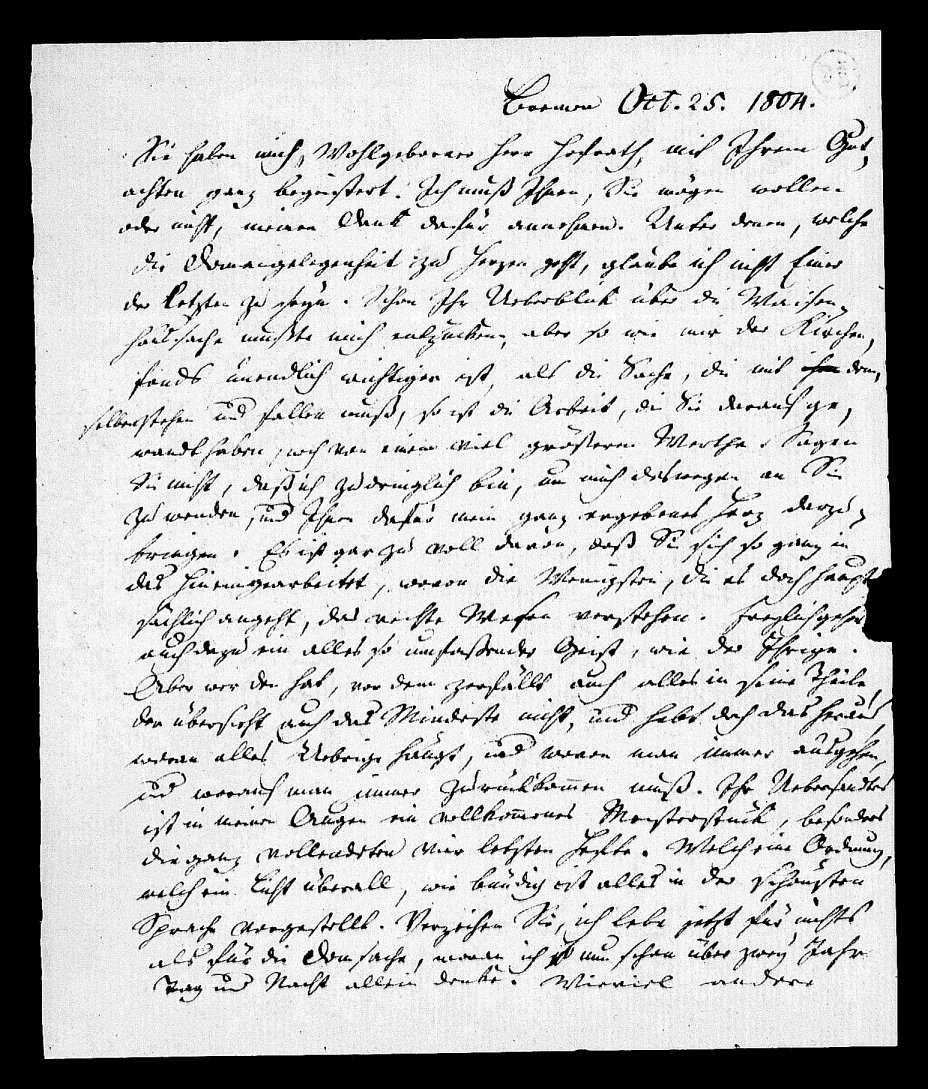 Bremen Oct. 25. 1804.
Sie haben mich, Wohlgeborner Herr Hofrath, mit Ihrem Gut,
achten ganz begeistert. Ich muß Ihnen, Sie mögen wollen
oder nicht, meinen Dank dafür annehmen. Unter denen, welche
die Domangelegenheit zu Herzen geht, glaube ich nicht Einer
der Letzten zu seyn. Schon Ihr Ueberblick über die Waisen-
haussache mußte mich entzücken, aber so wie mir der Kirchen,
fonds unendlich wichtiger ist, als die Sache, die mit dem,
selben stehen und fallen muß, so ist die Arbeit, die Sie darauf ge,
wandt haben, noch von einem viel größeren Werthe. Sagen
Sie nicht, daß ich zudringlich bin, um mich deswegen an Sie
zu wenden, und Ihnen dafür mein ganz ergebenes Herz darzu-
bringen. Es ist gar zu voll davon, daß Sie sich so ganz in
das hineingearbeitet, wovon die Wenigsten, die es doch haupt
sächlich angeht, das rechte Wesen verstehen. Freylich gehört
auch dazu ein alles so umfassender Geist, wie der Ihrige.
Aber wer den hat, vor dem zerfällt auch alles in seine Theile,
der übersieht auch das Mindeste nicht, und hebt doch das heraus,
woran alles Uebrige hängt, und wovon man immer ausgehen,
und worauf man immer zurückkommen muß. Ihr Uebersandtes
ist in meinen Augen ein vollkommenes Meisterstück, besonders
die ganz vollendeten vier letzten Hefte. Welch eine Ordnung,
welch ein Licht überall, wie bündig ist alles in der schönsten
Sprache vorgestellt. Verzeihen Sie, ich lebe jetzt für nichts
als für die Domsache, woran ich nun schon über zwey Jahr
Tag und Nacht allein denke. Wieviel andere